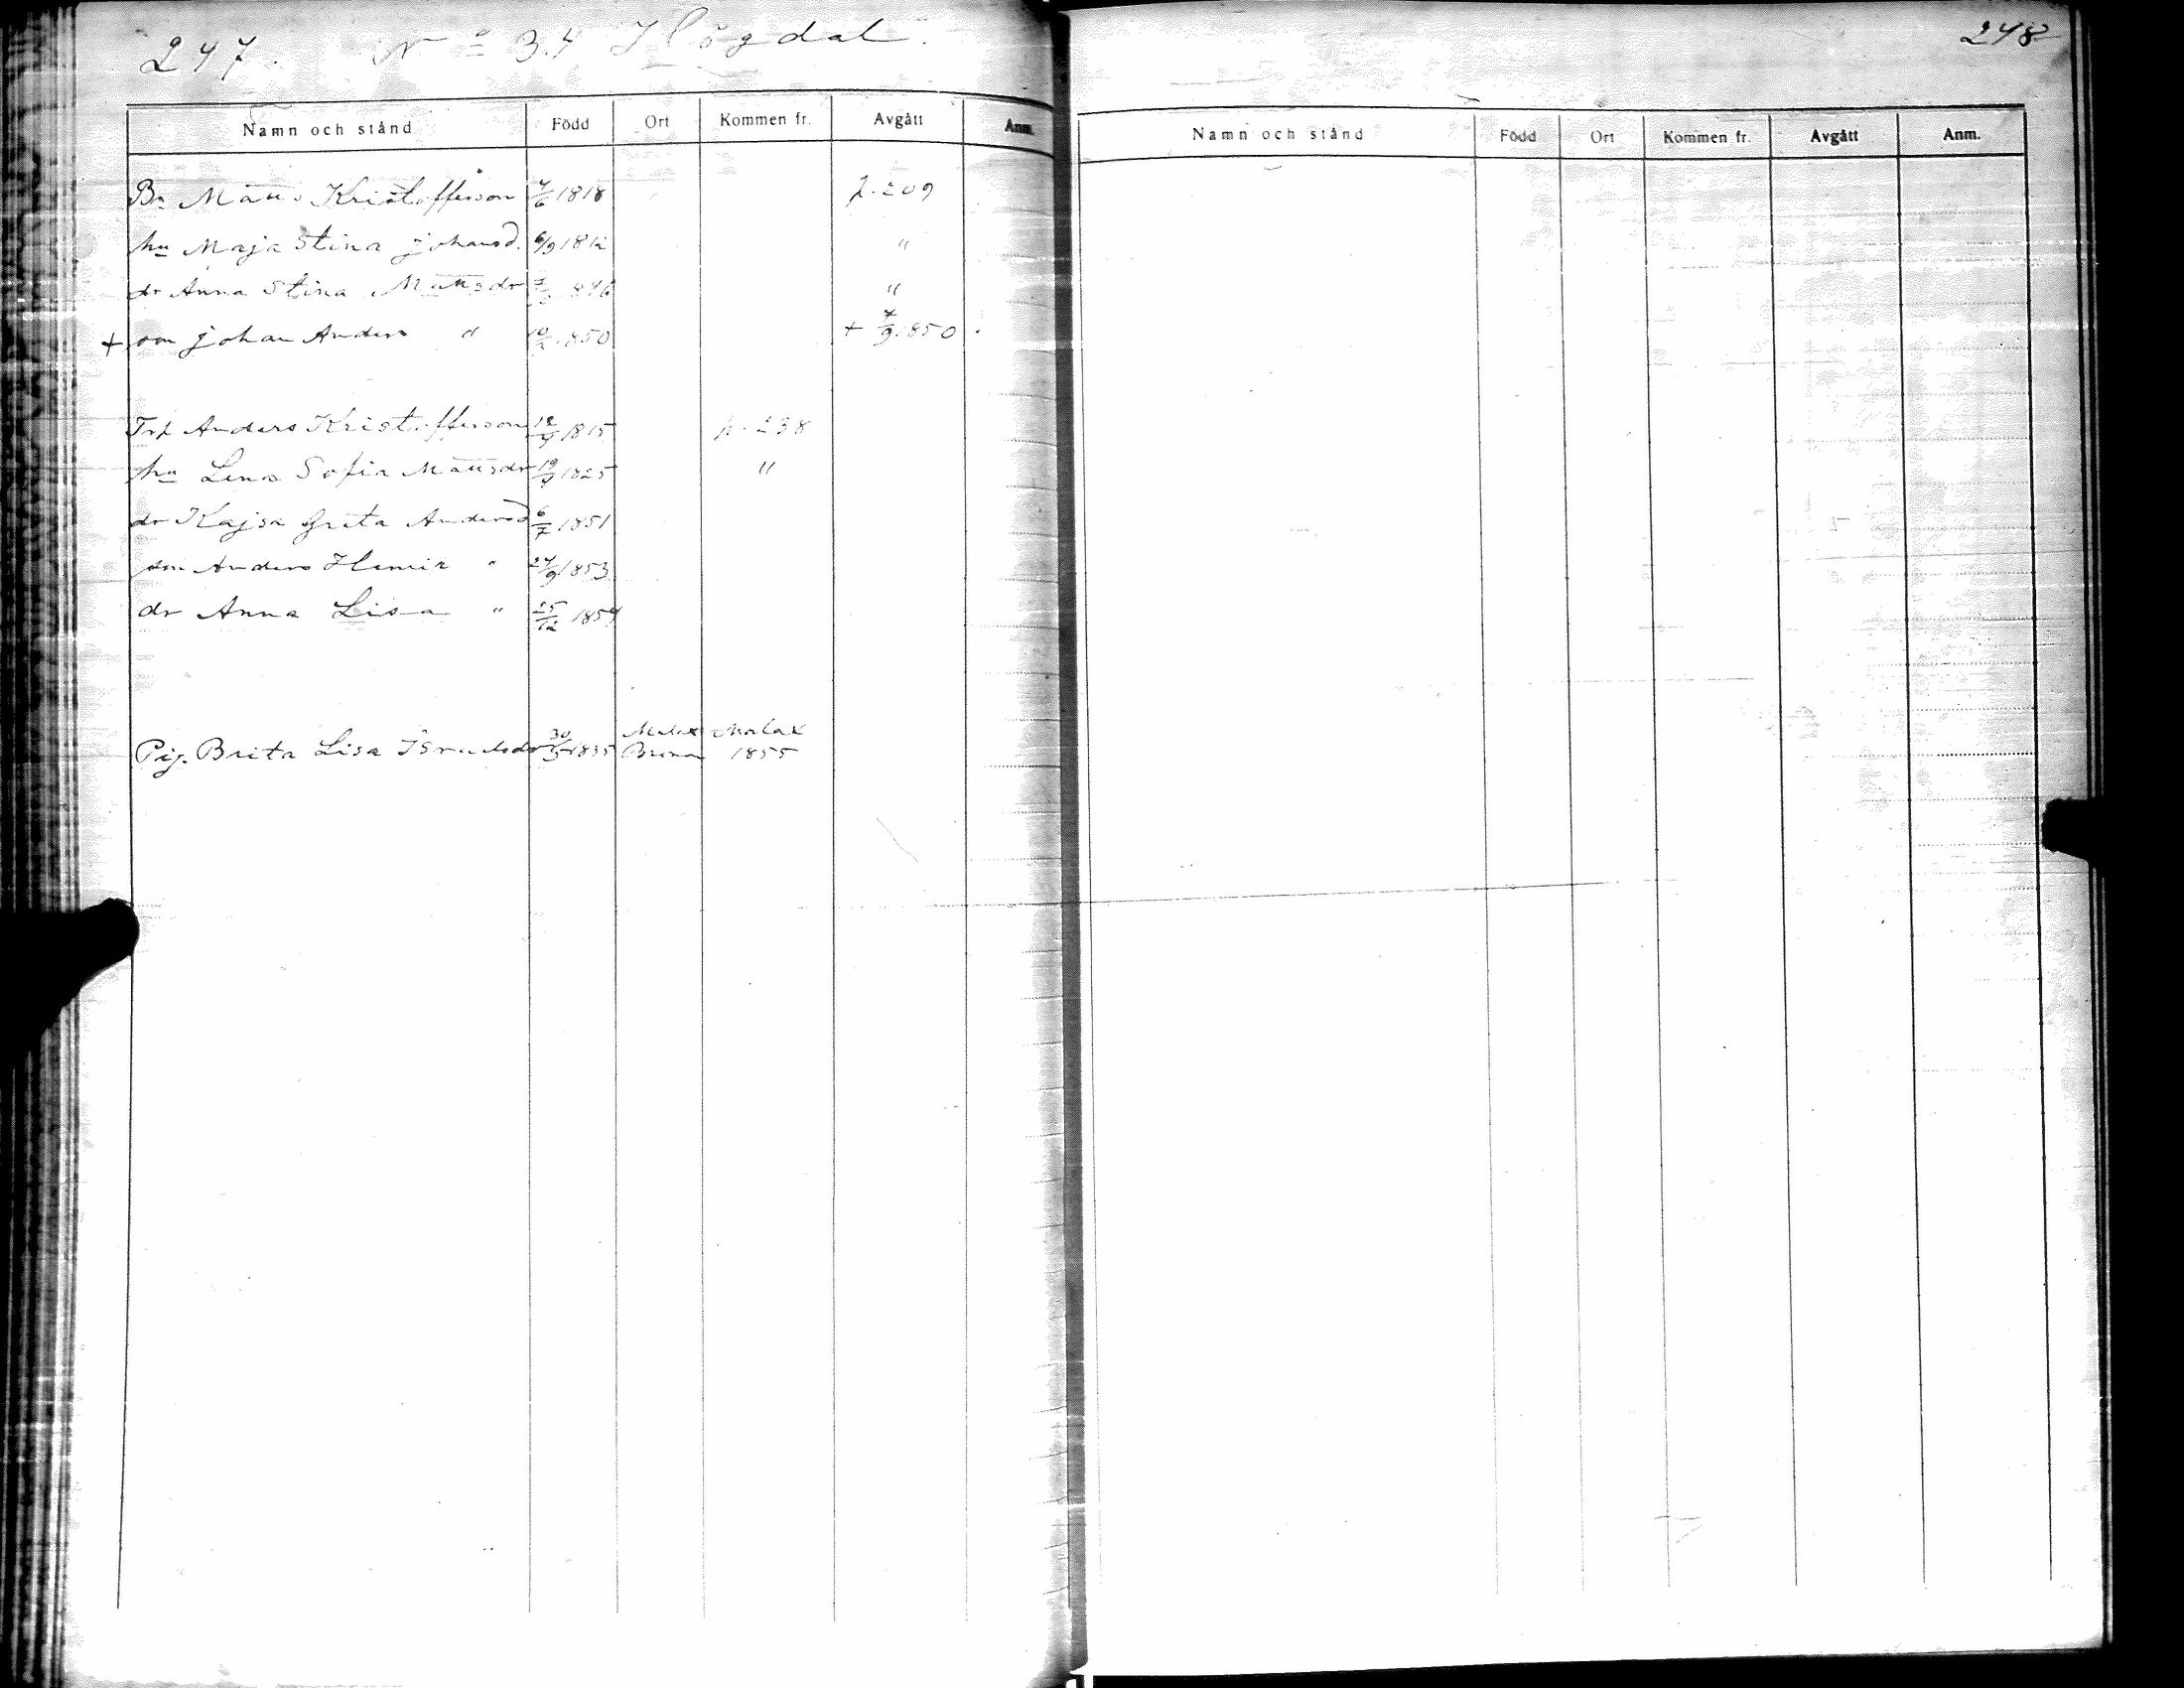 247. No 34 Högdal.
Namn och stånd Född Ort Kommen fr. Avgått Anm.
Bn Matts Kristoffersson 4/6 1818 p. 209
hu Maja Stina Johansd. 6/9 1812 "
dr Anna Stina Mattsdr 846 "
+ son Johan Anders " 10/2 850 + 7/9 850.
Trp Anders Kristoffersson 12/9 1815 p. 238
hu Lena Sofia Mattsdr 19/9 1825 "
dr Kajsa Greta Andersd 6/7 1851
son Anders Henric " 24/9 1853
dr Anna Lisa " 25/12 1854
Malax Malax
Pig. Brita Lisa Israelsdr 30/5 1835 1855
248
Namn och stånd Född Ort Kommen fr. Avgått Anm.